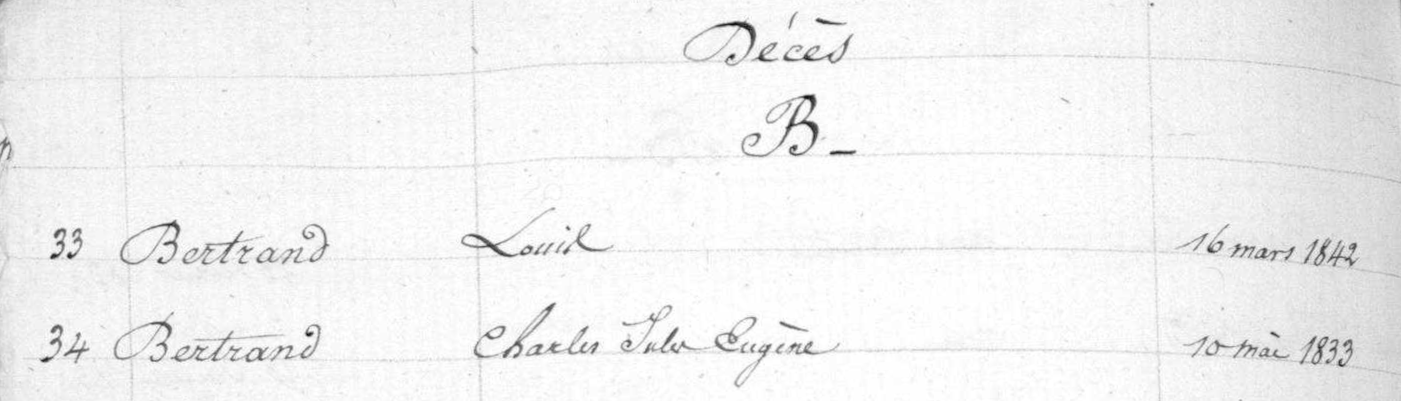 Décès
B_
33 Bertrand Louis 16 mars 1842
34 Bertrand Charles Jules Eugène 10 mai 1833